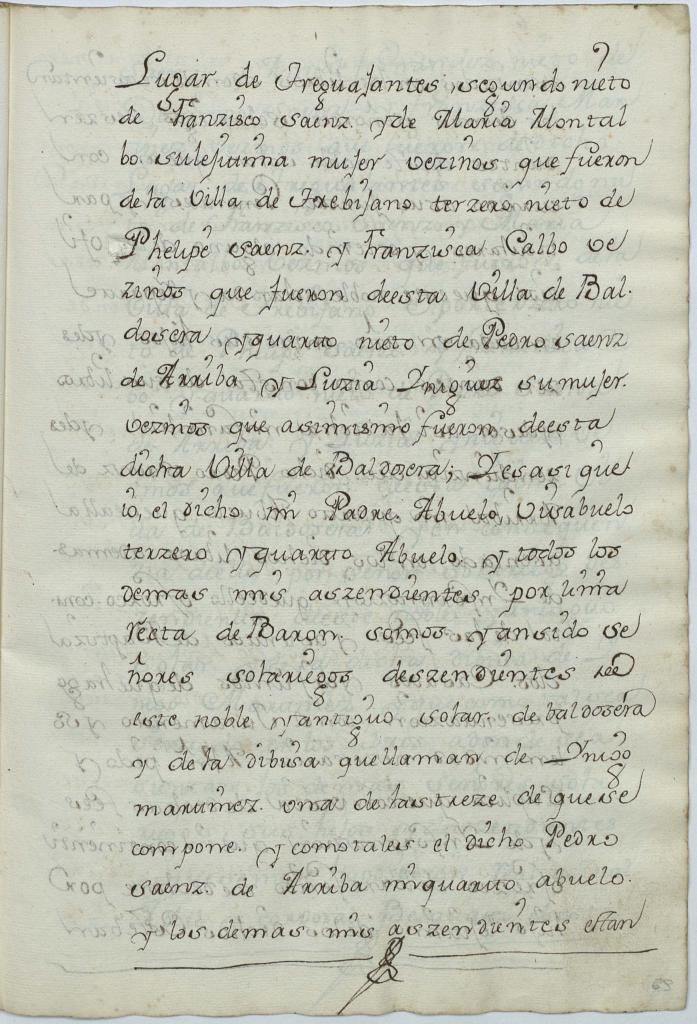 Lugar de Treguajantes, segundo nieto
de Franzisco saenz. y de Maria Montal
bo. su lejitima mujer vezinos que fueron
de la Villa de Trebijano terzero nieto de
Phelipe saenz. y Franzisca Calbo ve
zinos que fueron de esta Villa de Bal.
dosera y quarto nieto de Pedro saenz
de Arriba y Luzia Yniguez su mujer.
vezinos que asimismo fueron de esta
dicha Villa de Baldosera; Yes asi que
io, el dicho mi Padre. Abuelo, Visabuelo
terzero y quarto Abuelo, y todos los
demas mis aszendientes, por linia
recta de Baron. somos, y an sido se
ñores solariegos deszendientes de
este noble y antiguo solar. de baldosera
y de la dibisa que llaman de Ynigo
martinez. una de las treze de que se
compone. y como tales el dicho Pedro
saenz. de Arriba mi quarto abuelo.
y los demas mis aszendientes estan
69